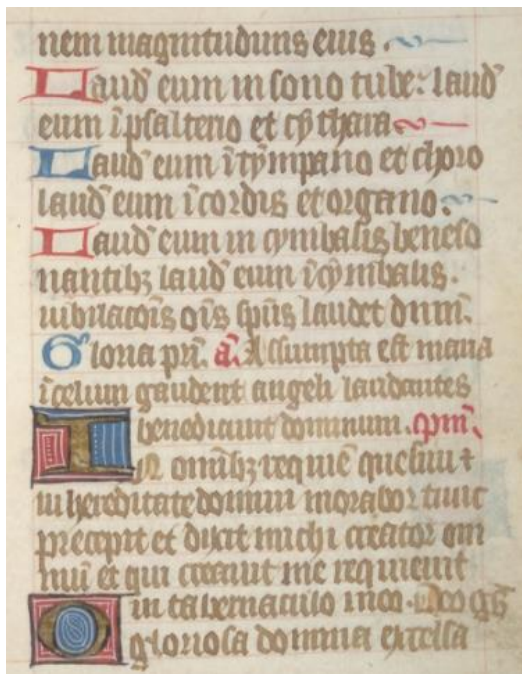 nem magnitudinis eius.
Laud̄ eum in sono tube: laud̄
eum ī psalterio et cythara
Laud̄ eum ī tympano et choro
laud̄ eum ī cordis et organo.
Laud̄ eum in cymbalis beneso
nantibꝫ laud̄ eum ī cymbalis.
iubilacōis oīs sp̄us laudet dn̄m.
Gloria pr̄i. ā. Assumpta est maria
ī celum gaudent angeli laudantes
benedicunt dominum. cpm̄.
IN omībꝫ requiē quesiui ⁊
in hereditate domini morabor tunc
precepit et dixit michi creator om
niū et qui creauit me requieuit
in tabernaculo meo. Deo gr̄s
O gloriosa domina excelsa